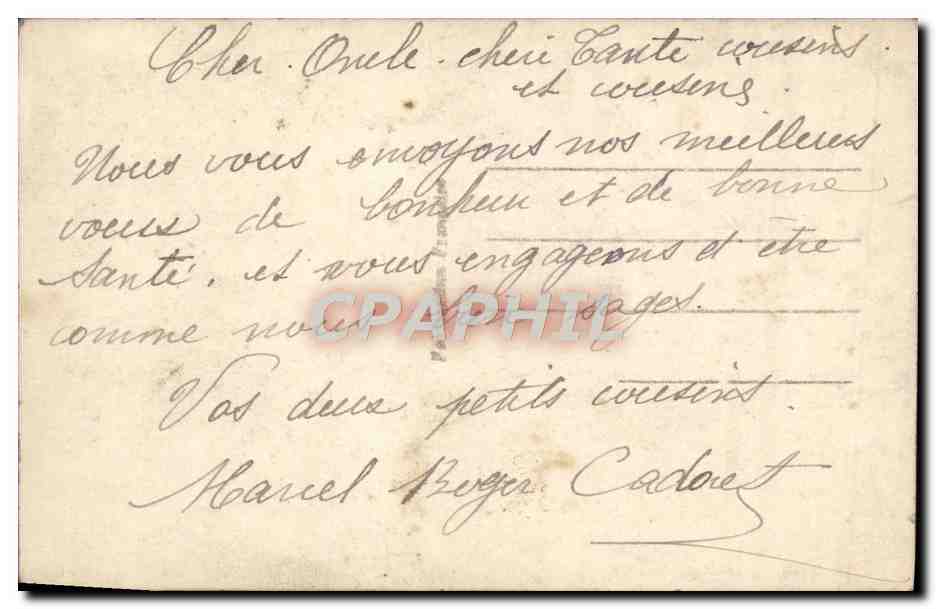 Cher Oncle chère Tante cousins
et cousines.
Nous vous envoyons nos meilleurs
voeus de bonheur et de bonne
Santé. et vous engageons d'être
comme nous bien sages.
Vos deux petits cousins.
Marcel Roger Cadoret
CPAPHIL